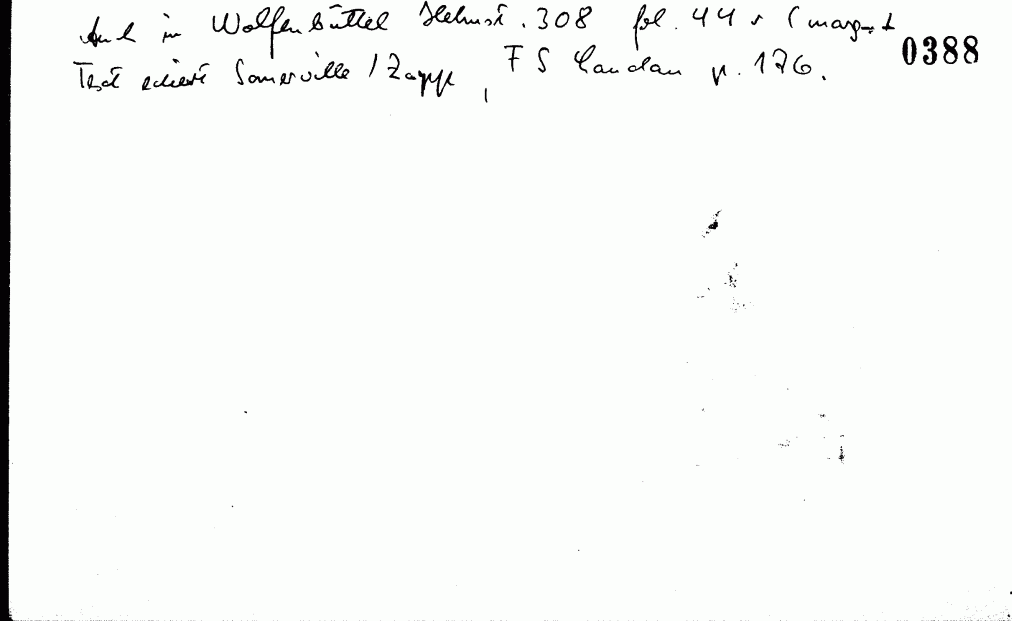 Auch in Wolfenbüttel Helmst. 308 fol. 44 r (marg.)
0388
Text ediert Somerville / Zapp, FS Landau p. 176.